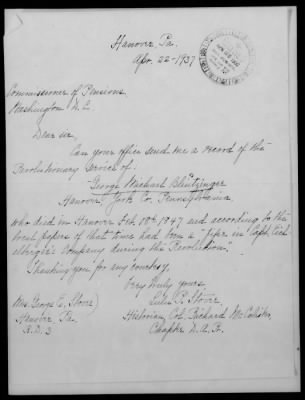 Hanover, Pa.
Apr. 22-1937
Commissioner of Pensions
Washington D.C.
Dear sir,
Can your office send me a record of the
Revolutionary service of:
George Michael Blintzinger
Hanover, York Co. Pennsylvania.
who died in Hanover Feb. 18th 1847 and according to the
local papers of that time had been a "fifer in Capt.
Company during the Revolution".
Thanking you for any courtesy,
Very truly yours,
Lulu P. Stover
Mrs. George E. Stover
Historian, Col. Richard McCalister
Hanover, Pa.
Chapter D.A.R.
R.D. 3